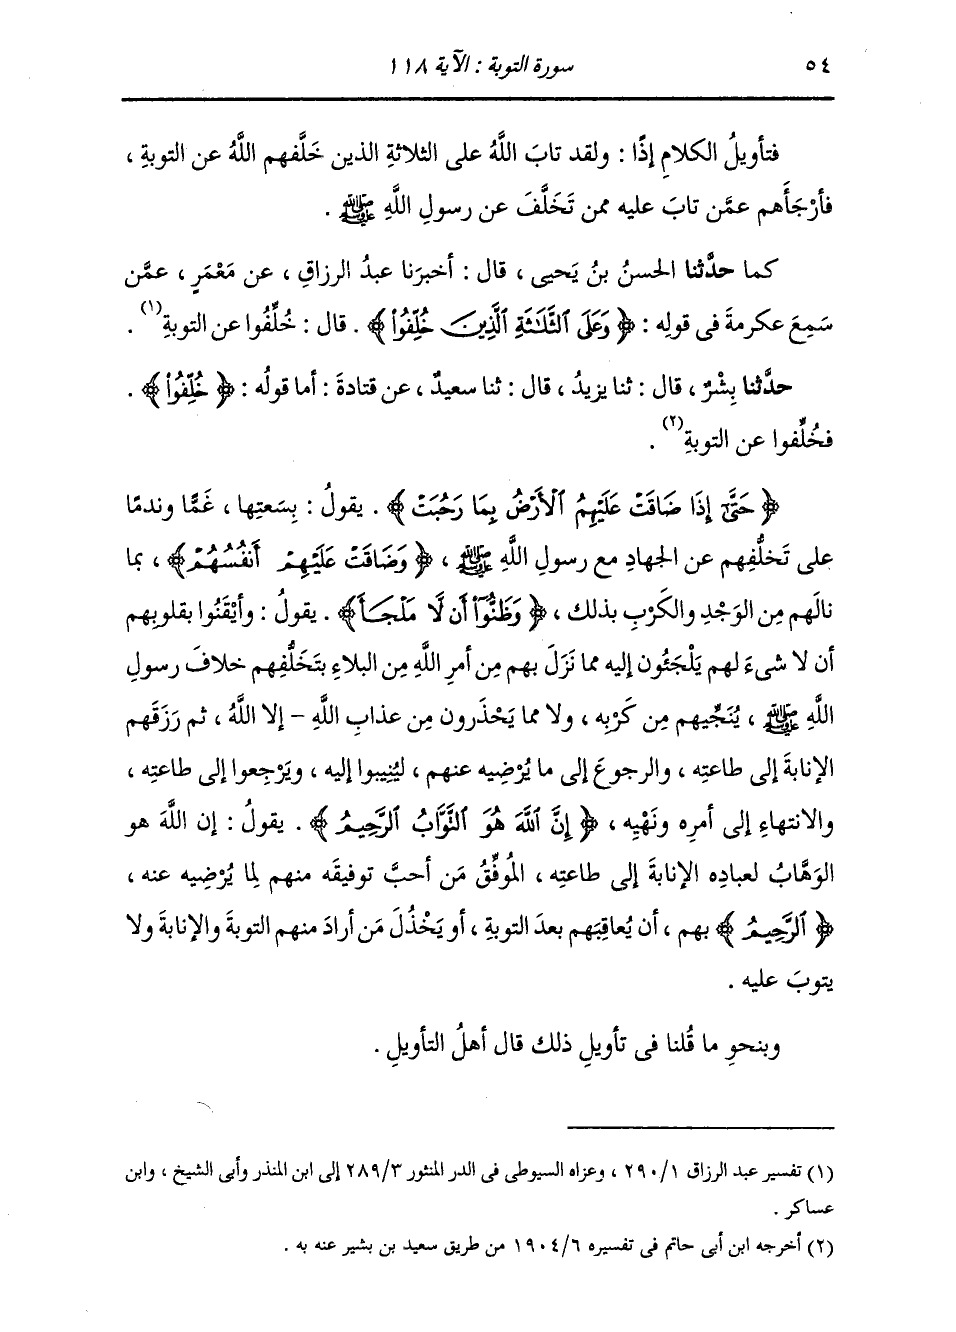 ٥٤ سورة التوبة : الآية ١١٨
فتأويلُ الكلامِ إذًا : ولقد تابَ اللَّهُ على الثلاثةِ الذين خَلَّفهم اللَّهُ عن التوبةِ ،
فأرْجَأَهم عمَّن تابَ عليه ممن تَخَلَّفَ عن رسولِ اللَّهِ ﷺ .
كما حدَّثنا الحسنُ بنُ يَحيى ، قال : أخبرَنا عبدُ الرزاقِ ، عن مَعْمَرٍ ، عمَّن
سَمِعَ عكرمةَ فى قولِه : ﴿ وَعَلَى ٱلثَّلَٰثَةِ ٱلَّذِينَ خُلِّفُوا۟ ﴾ . قال : خُلِّفُوا عن التوبةِ(١) .
حدَّثنا بِشْرٌ ، قال : ثنا يزيدُ ، قال : ثنا سعيدٌ ، عن قتادةَ : أما قولُه : ﴿ خُلِّفُوا۟ ﴾ .
فخُلِّفوا عن التوبةِ(٢) .
﴿ حَتَّىٰٓ إِذَا ضَاقَتْ عَلَيْهِمُ ٱلْأَرْضُ بِمَا رَحُبَتْ ﴾ . يقولُ : بِسَعتِها ، غَمًّا وندمًا
على تَخلُّفِهم عن الجهادِ مع رسولِ اللَّهِ ﷺ ، ﴿ وَضَاقَتْ عَلَيْهِمْ أَنفُسُهُمْ ﴾ ، بما
نالَهم مِن الوَجْدِ والكَرْبِ بذلك ، ﴿ وَظَنُّوٓا۟ أَن لَّا مَلْجَأَ ﴾ . يقولُ : وأيْقَنُوا بقلوبِهم
أن لا شىءَ لهم يَلْجَئُون إليه مما نَزَلَ بهم مِن أمرِ اللَّهِ مِن البلاءِ بتَخَلُّفِهم خلافَ رسولِ
اللَّهِ ﷺ ، يُنَجِّيهم مِن كَرْبِه ، ولا مما يَحْذَرون مِن عذابِ اللَّهِ – إلا اللَّهُ ، ثم رَزَقَهم
الإنابةَ إلى طاعتِه ، والرجوعَ إلى ما يُرْضِيه عنهم ، ليُنِيبوا إليه ، ويَرْجِعوا إلى طاعتِه ،
والانتهاءِ إلى أمرِه ونَهْيِه ، ﴿ إِنَّ ٱللَّهَ هُوَ ٱلتَّوَّابُ ٱلرَّحِيمُ ﴾ . يقولُ : إن اللَّهَ هو
الوَهَّابُ لعبادِه الإنابةَ إلى طاعتِه ، المُوفِّقُ مَن أحبَّ توفيقَه منهم لِما يُرْضِيه عنه ،
﴿ ٱلرَّحِيمُ ﴾ بهم ، أن يُعاقِبَهم بعدَ التوبةِ ، أو يَخْذُلَ مَن أرادَ منهم التوبةَ والإنابةَ ولا
يتوبَ عليه .
وبنحوِ ما قُلنا فى تأويلِ ذلك قال أهلُ التأويلِ .
(١) تفسير عبد الرزاق ٢٩٠/١ ، وعزاه السيوطى فى الدر المنثور ٢٨٩/٣ إلى ابن المنذر وأبى الشيخ ، وابن
عساكر .
(٢) أخرجه ابن أبى حاتم فى تفسيره ١٩٠٤/٦ من طريق سعيد بن بشير عنه به .